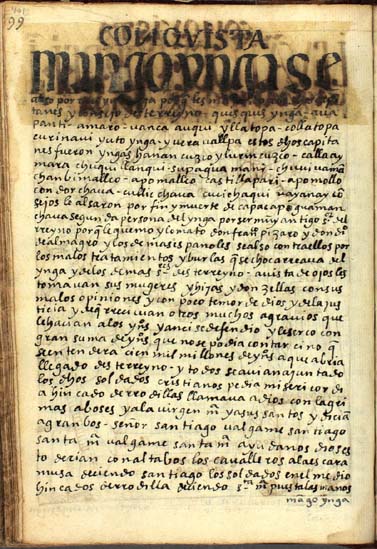 99
CONQVISTA
MANGOYNGASE
alsó por rrey ynga porq tes
tanes y consejo des te rreyno - quis quis ynga - aua
panti - amaro - uanca auqui - ylla topa - colla topa
curinaui - yuto ynga - y uera uallpa estos dhos capita
nes fueron yngas hanan cuzco y lurin cuzco - callacay
mara - chuqui llanqui - supa guamani - chuui uaman
chanbi mallco - apo mallco - castilla pari - apo mollo
con dor chaua - cullic chaua - cuci chaqui - uayanay con
sejos le alsaron por fin y muerte de capac apo guaman
chaua segunda persona del ynga por ser muy antigo sr. del
rreyno porq le quemo y lo mato don franco pizarro y don di
de almagro y los demas españoles se also contra ellos por
los malos tratamientos y burlas que se hocarreaua del
ynga y de los demas sres deste rreyno - a uista de ojos les
tomauan sus mugeres y hijas y donzellas con sus
malos opiniones y con poco temor de dios y de la jus
ticia y deq rreciuian otros muchos agrauios que
le hacian a los yos y anci se defendio y le serco con
gran suma de yos que no se podia contar cino q
se entendera cien mil millones de yos que abria
llegado des te rreyno - y todo se auian ajuntado
los dhos soldados cristianos pedia misericordi
a hincado de rrodillas llamaua a dios con lagri
mas a boses y a la uirgen ma y a sus santos y decia
a gran bos - señor santiago ualgame santiago
santa ma ualgame santa ma ayudanos dios es
to decian con altabos los caualleros a las es cara
musa deciendo santiago los soldados en el medio
hincados de rrodilla deciendo sta ma pues tas las manos
mango ynga